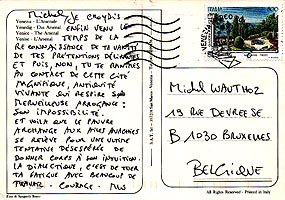 Michel,
Venezia - L'Arsenale
Venedig - Das Arsenal
Venice - The Arsenal
Venise - L'Arsenal
JE CROYAIS
ENFIN VENU LE
TEMPS DE LA
RECONNAISSANCE DE TA VANITÉ
DE TES PRÉTENTIONS DÉLIRANTES
ET PUIS, NON, TU TE PÂMES
AU CONTACT DE CETTE CITÉ
MAGNIFIQUE, ANTIQUITÉ
VIVANTE QUI RESPIRE SON
MERVEILLEUSE ARROGANCE :
SON IMPOSSIBILITÉ.
ET VOILÀ QUE LE PAUVRE
ARCHANGE AUX AILES
SE RELÈVE POUR UNE ULTIME
TENTATIVE DÉSESPÉRÉE DE
DONNER CORPS À SON INTUITION.
LA DIALECTIQUE, C'EST DE TUER
TA FATIGUE AVEC BEAUCOUP DE
TRAVAIL. COURAGE.
ITALIA
Michel WAUTHOZ
19 RUE DEVREESE
B 1030 BRUXELLES
BELGIQUE
All Rights Reserved - Printed in Italy